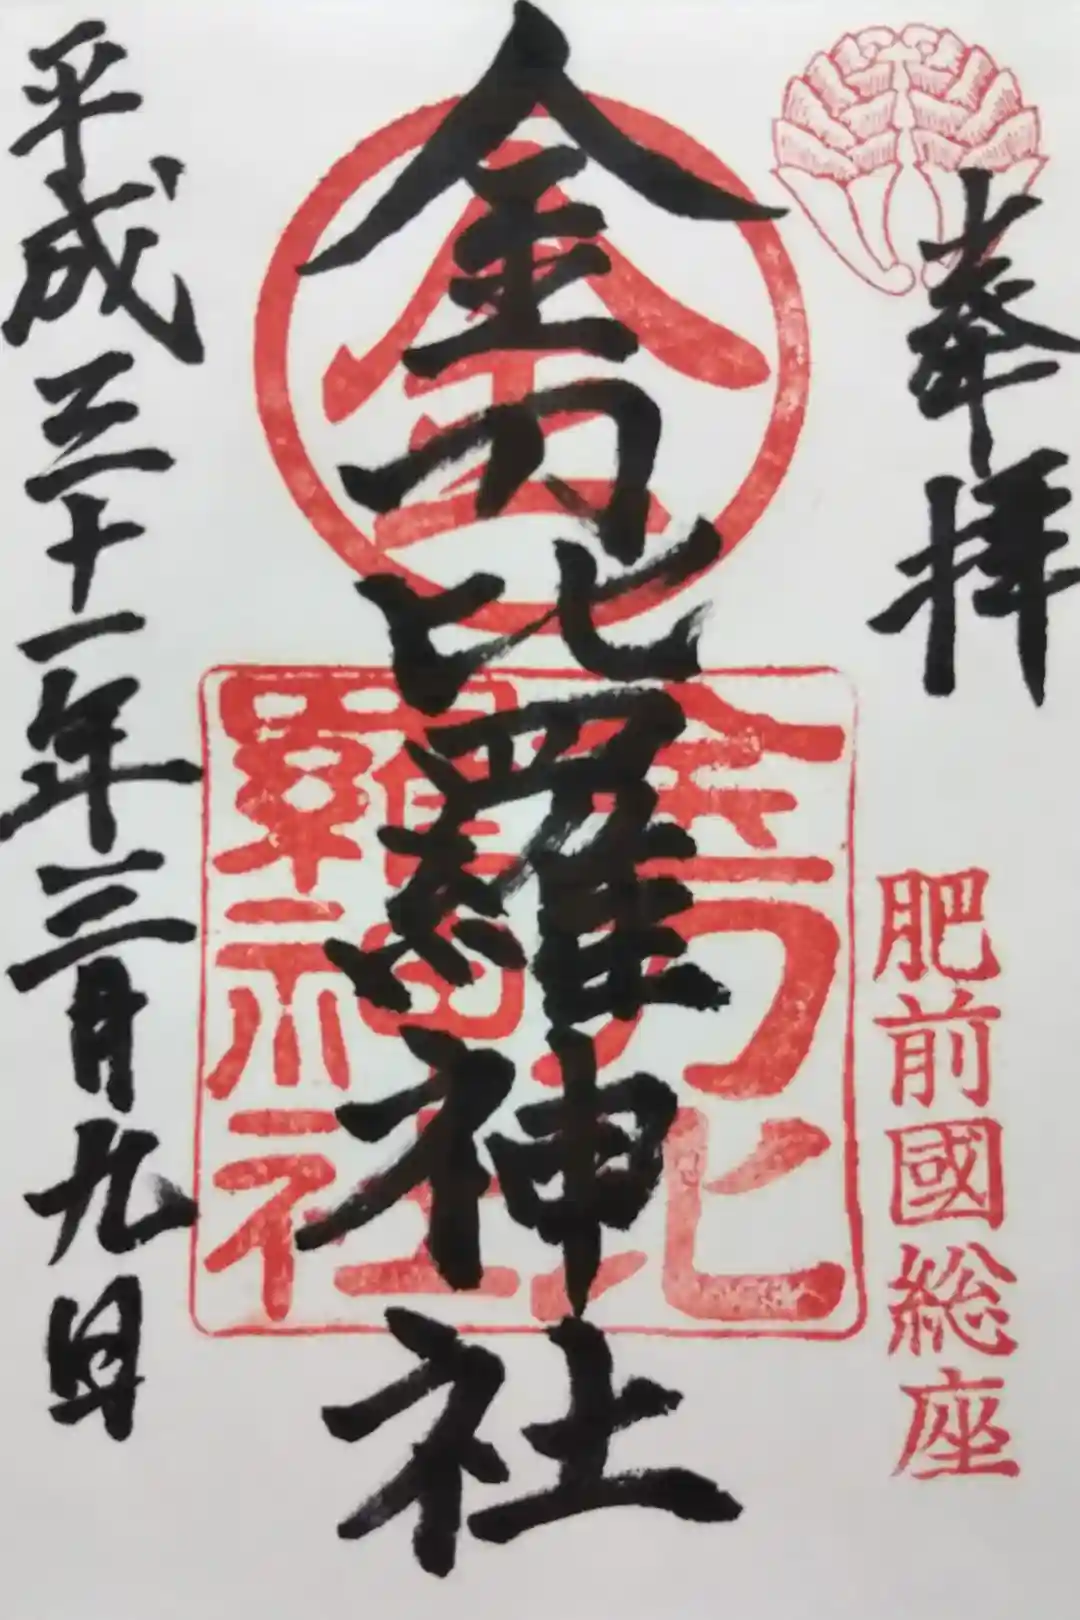 奉拝
肥前國総座
金
金刀比羅神社
金刀比
羅神社
平成三十一年三月九日